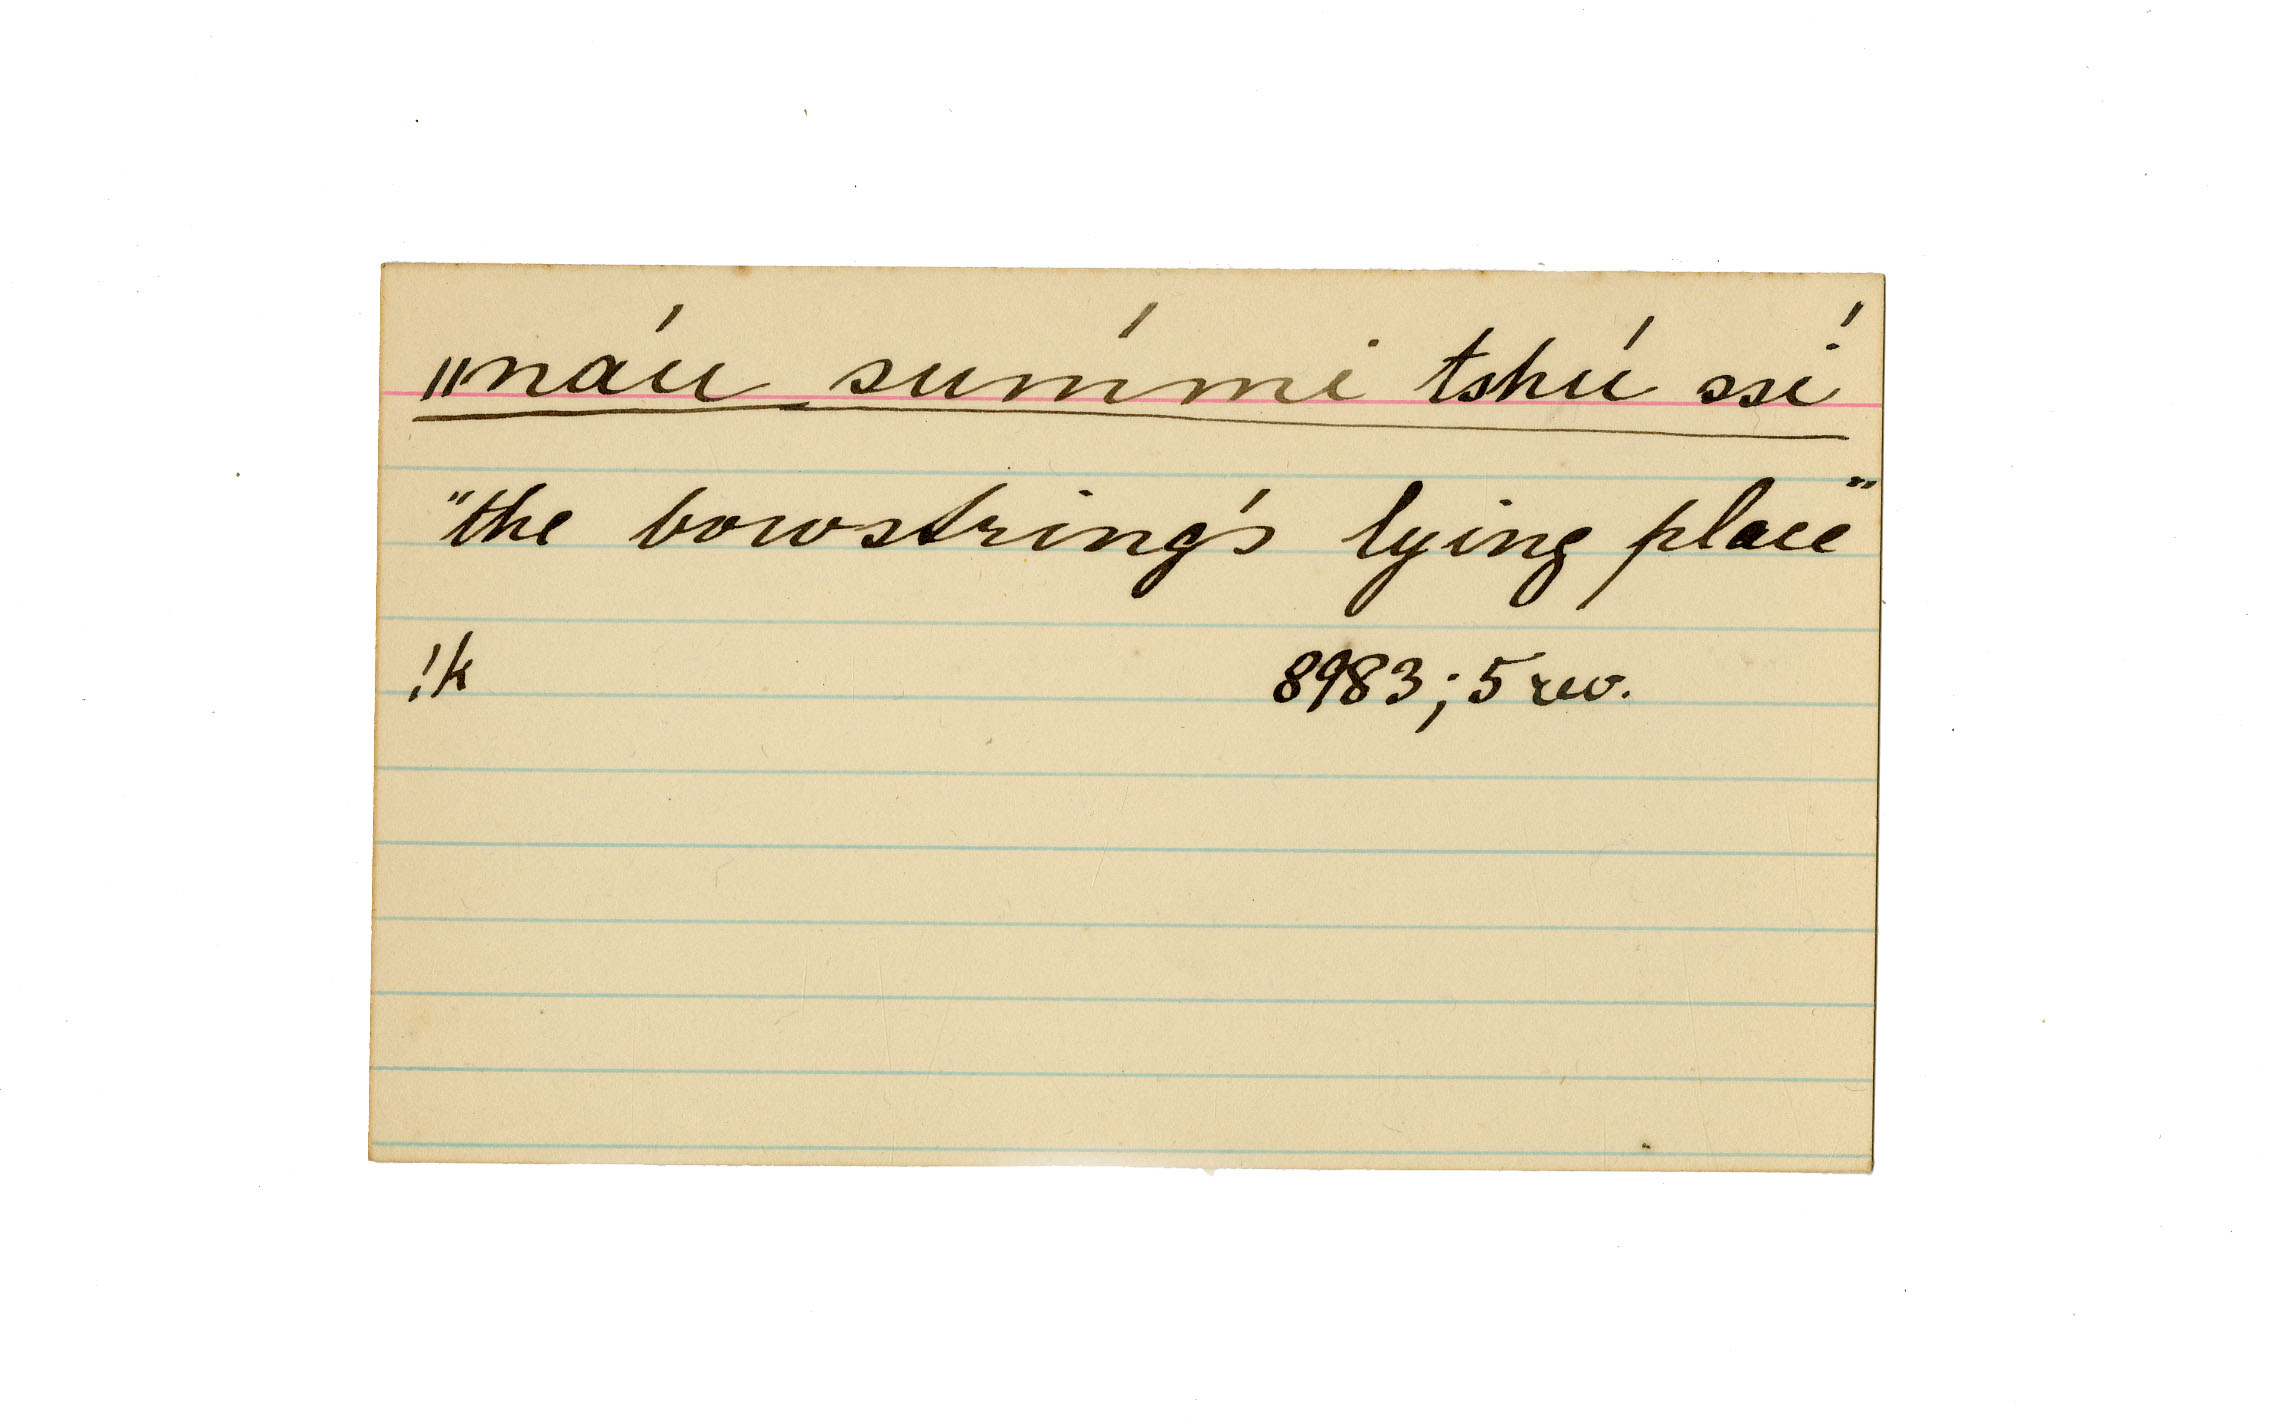 ‖náu súmmi tshú ssí
"the bowstring's lying place"
!k 8983; 5 rev.